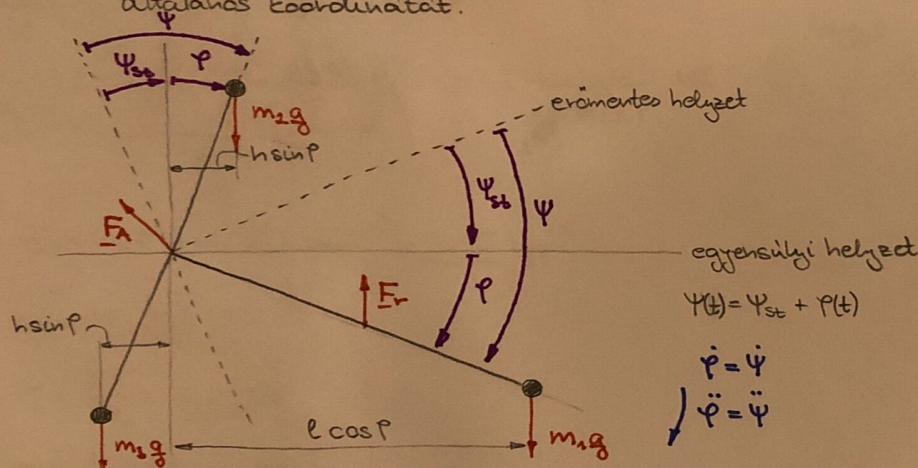 általános koordinátát.
ψ
ψst φ
m₂g
h sinφ
erőmentes helyzet
ψst
ψ
F_A
egyensúlyi helyzet
F_r
φ
ψ(t) = ψst + φ(t)
h sinφ
φ̇ = ψ̇
φ̈ = ψ̈
m₃g
l cosφ
m₁g